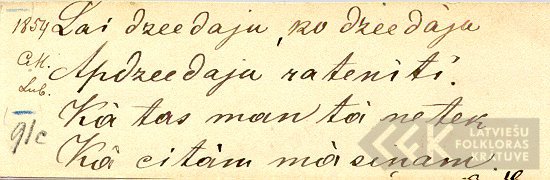 1854 Lai dzeedaju, ko dzeedāju
C.H. Apdzeedaju rateniti.
Lub. Kā tas man tā netek
91c Kā citām māsiņam
LATVIEŠU
FOLKLORAS
KRĀTUVE